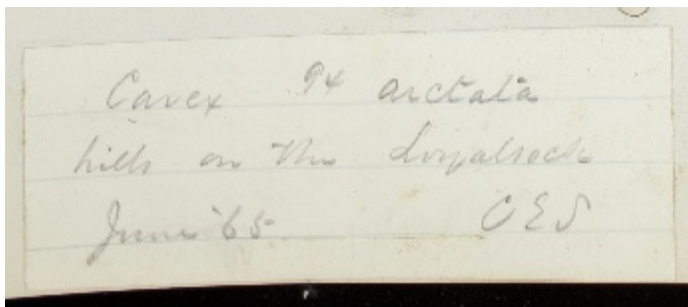 Carex 94 arctata
hills on the Loyalsock
June '65 CES